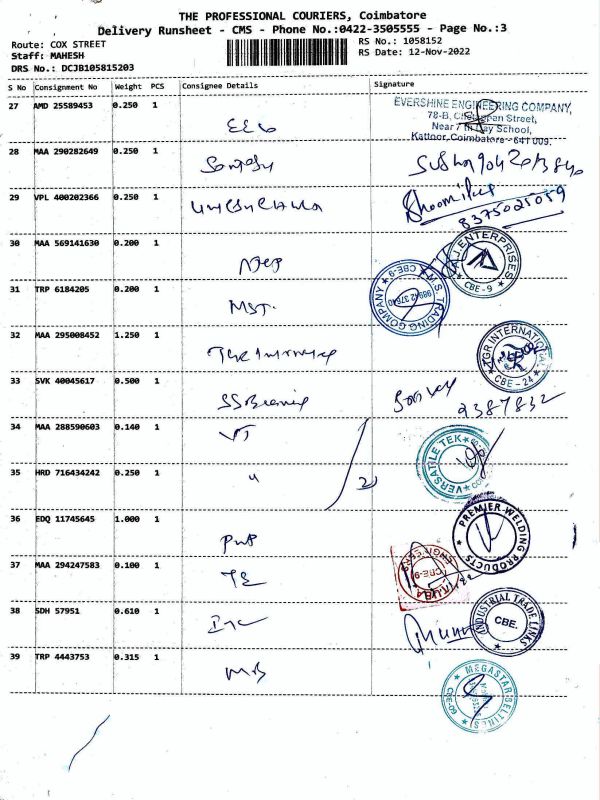 THE PROFESSIONAL COURIERS, Coimbatore
Delivery Runsheet - CMS - Phone No.:0422-3505555 - Page No.:3
Route: COX STREET
Staff: MAHESH
DRS No.: DCJB105815203
RS No.: 1058152
RS Date: 12-Nov-2022
S No Consignment No Weight PCS Consignee Details Signature
27 AMD 25589453 0.250 1
EVERSHINE ENGINEERING COMPANY,
78-B, Street,
Near 7 th Day School,
Kattoor, Coimbatore - 641 009.
28 MAA 290282649 0.250 1
29 VPL 400202366 0.250 1
8375021059
30 MAA 569141630 0.200 1
J.ENTERPRISES
CBE - 9
31 TRP 6184205 0.200 1 MST.
M.S. TRADING COMPANY
CBE-9
98942 37640
32 MAA 295008452 1.250 1
TGR INTERNATIONAL
CBE - 24
33 SVK 40045617 0.500 1 SS Bearing
2387832
34 MAA 288590603 0.140 1 VT
VERSATILE TEK
35 HRD 716434242 0.250 1 "
2)
36 EDQ 11745645 1.000 1 PWP
PREMIER WELDING PRODUCTS
37 MAA 294247583 0.100 1 TE
ENGINEERS
CBE-9
38 SDH 57951 0.610 1
INDUSTRIAL TRADE LINKS
CBE.
39 TRP 4443753 0.315 1 MB
MEGASTAR BELTINGS